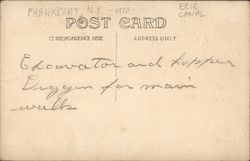 FRANKFORT, N.Y. -1910-
ERIE
CANAL
POST CARD
CORRESPONDENCE HERE
ADDRESS ONLY
Excavator and hopper
Diggin for main
walls